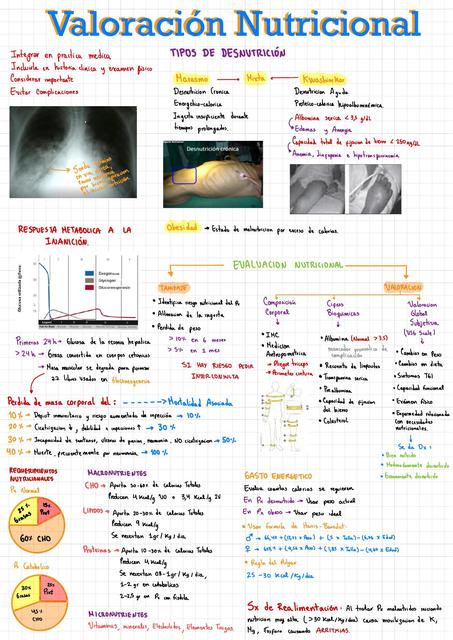 Valoración Nutricional
Integrar en practica medica
Incluirla en historia clinica y examen fisico
Considerar importante
Evitar complicaciones
TIPOS DE DESNUTRICIÓN
Marasmo → Mixta ← Kwashiorkor
Desnutricion Cronica
Energetico-calorica
Ingesta insuficiente durante
tiempos prolongados.
Desnutricion Aguda
Proteico-calorica hipoalbuminemica.
Albumina serica < 3,5 g/dL
Edemas y Anergia
Capacidad total de fijacion de hierro < 250 mg/dL
Anemia, linfopenia e hipotransferrinemia
Desnutrición crónica
RESPUESTA METABOLICA A LA
INANICIÓN.
Obesidad → Estado de malnutricion por exceso de calorias.
Exogenous
Glycogen
Gluconeogenesis
Primeras 24h → Glucosa de la reserva hepatica
> 24h → Grasa convertida en cuerpos cetonicos
→ Masa muscular se degrada para formar
Gluconeogenesis
EVALUACION NUTRICIONAL
TAMIZAJE
• Identifica riesgo nutricional del Px
• Alteracion de la ingesta
• Perdida de peso
> 10% en 6 meses
> 5% en 1 mes
SI HAY RIESGO PEDIR
INTERCONSULTA
VALORACIÓN
Composición
Corporal
• IMC
• Medicion
Antropometrica
→ Pliegue triceps
→ Perimetro cintura
Bioquimicos
• Albumina (Normal > 3.5)
• Recuento de linfocitos
• Transferrina serica
• Prealbumina
• Capacidad de fijacion
del hierro
• Colesterol
Valoracion
Global
Subjetiva
• Cambios en peso
• Cambios en dieta
• Sintomas TGI
• Capacidad funcional
• Exámen físico
• Enfermedad relacionada
con necesidades
nutricionales.
Se da Dx:
• Bien nutrido
• Moderadamente desnutrido
• Gravemente desnutrido
Perdida de masa corporal del: → Mortalidad Asociada
10% → Deficit inmunitario y riesgo aumentado de infección → 10%
20% → Cicatrizacion ↓, debilidad e infecciones ↑ → 30%
30% → Incapacidad de sentarse, ulceras de presion, neumonia, NO cicatrizacion → 50%
40% → Muerte, frecuentemente por neumonia → 100%
REQUERIMIENTOS
NUTRICIONALES
Px Normal
25% Grasas
15% Prot
60% CHO
Px Catabolico
30% Grasas
25% Prot
45% CHO
MACRONUTRIENTES
CHO → Aporta 50-60% de calorias Totales
Producen 4 Kcal/g VO o 3,4 Kcal/g IV
LIPIDOS → Aporta 20-30% de calorias Totales
Producen 9 Kcal/g
Se necesitan 1gr/Kg/dia
Proteinas → Aporta 10-30% de calorias Totales
Producen 4 Kcal/g
Se necesitan 0.8-1gr/Kg/dia,
1-2 gr en catabolicos
2-2,5 gr en Px con fistula
MICRONUTRIENTES
Vitaminas, minerales, Electrolitos, Elementos Trazas
GASTO ENERGETICO
Evalua cuantas calorias se requieren
En Px desnutrido → Usar peso actual
En Px obeso → Usar peso ideal
• Usar formula de Harris-Benedict:
• Regla del Pulgar
25-30 Kcal/Kg/dia
Sx de Realimentación: Al tratar Px desnutridos iniciando
nutricion muy alta (>30 Kcal/kg/dia) causa movilizacion de K,
Mg, Fosforo causando ARRITMIAS.